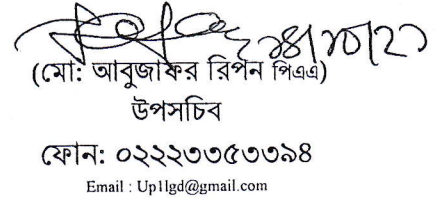 ২৪/১০/২১
(মো: আবুজাফর রিপন পিএএ)
উপসচিব
ফোন: ০২২২৩৩৫৩৩৯৪
Email : Up1lgd@gmail.com